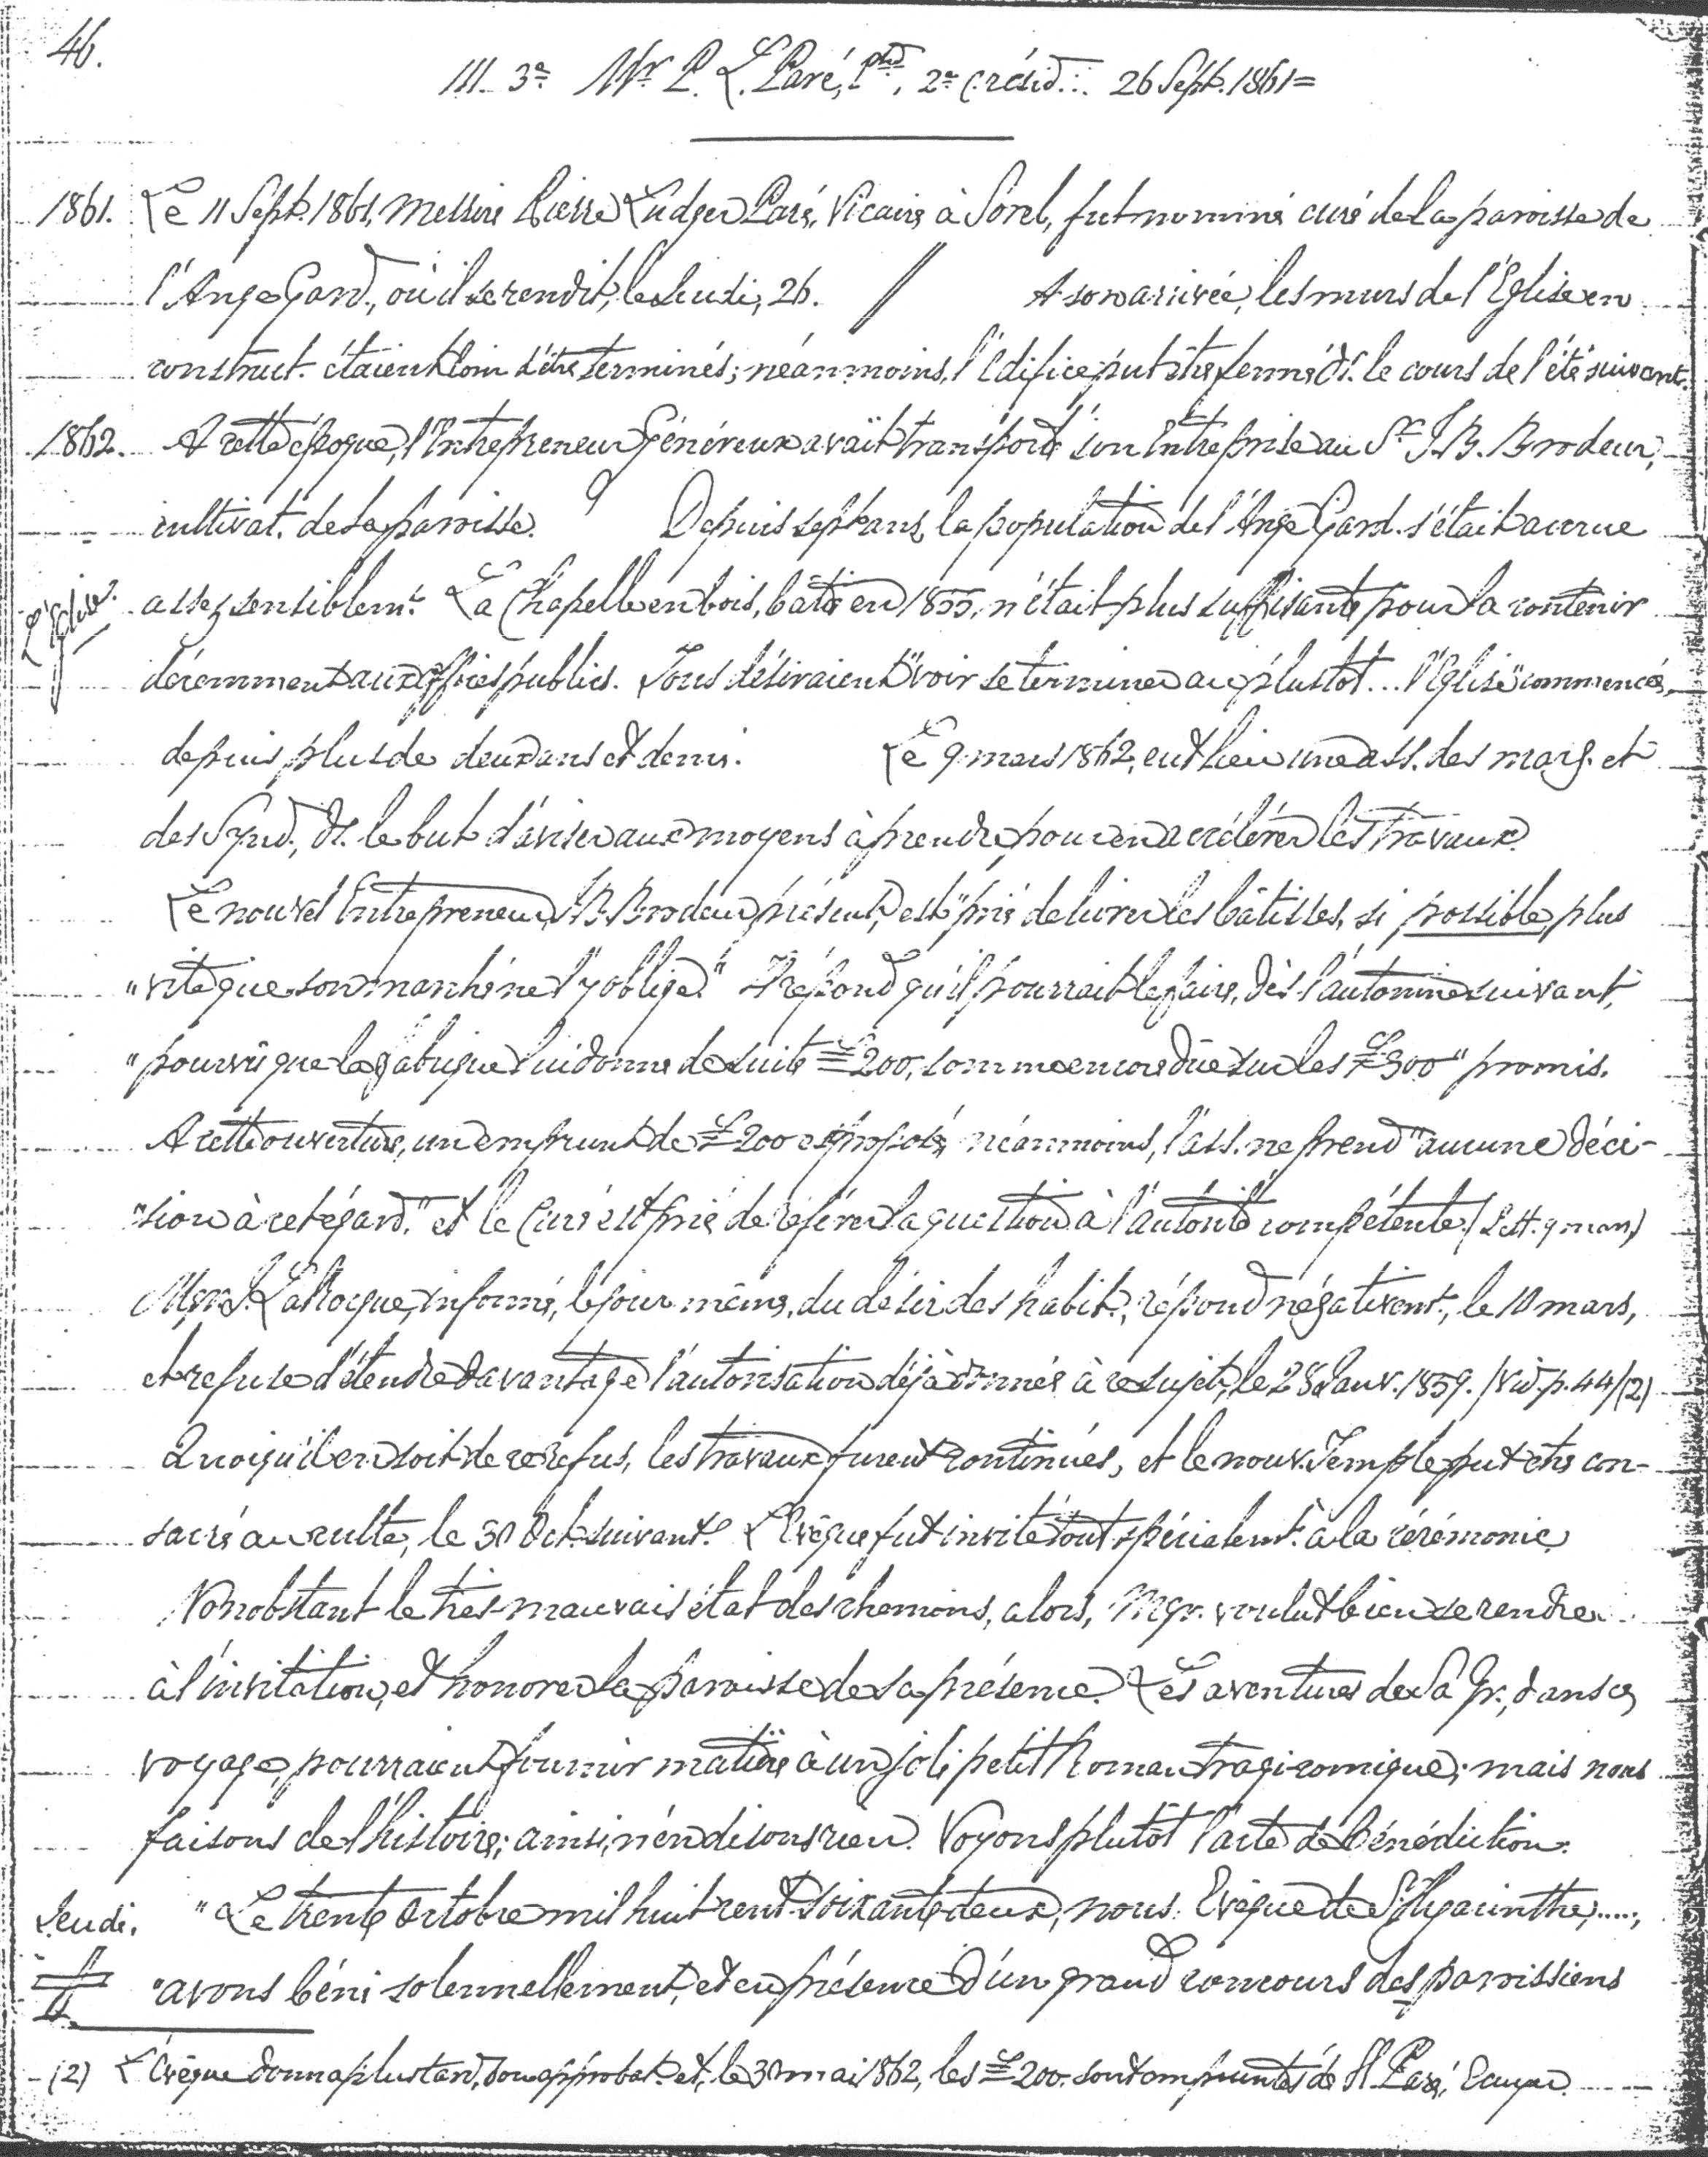 46.
III. 3º Mr P. L. Paré, Ptre, 2e C. résid... 26 Sept. 1861=
1861. Le 11 Sept. 1861, Messire Pierre Ludger Paré, Vicaire à Sorel, fut nommé curé de la paroisse de
l'Ange Gard., où il se rendit, le Jeudi, 26. // A son arrivée, les murs de l'Eglise en
construct. étaient loin d'être terminés; néanmoins, l'édifice put être fermé ds. le cours de l'été suivant.
1862. A cette époque, l'Entrepreneur Généreux avait transporté son Entreprise au Sr J. B. Brodeur,
cultivat. de la paroisse. Depuis sept ans, la population de l'Ange Gard. s'était accrue
L'Eglise. assez sensiblemt. La Chapelle en bois, bâtie en 1855, n'était plus suffisante pour la contenir
décemment aux offices publics. Tous désiraient "voir se terminer au plus tôt... l'Eglise" commencée,
depuis plus de deux ans et demi. Le 9 mars 1862, eut lieu une ass. des marg. et
des Synd., ds. le but d'aviser aux moyens à prendre, pour en accélérer les Travaux.
Le nouvel Entrepreneur, J. B. Brodeur, présent, est "prié de livrer les bâtisses, si possible, plus
"vite que son marché ne l'y oblige." Il répond qu'il pourrait le faire, dès l'automne suivant,
"pourvu que la fabrique lui donne de suite £200, somme encore due sur les £300" promis.
A cette ouverture, un emprunt de £200 est proposé; néanmoins, l'ass. ne prend "aucune déci-
"sion à cet égard." et le Curé est prié de référer la question à l'autorité compétente (Lett. 9 mars)
Mgr J. LaRocque, informé, le jour même, du désir des habit., répond négativemt., le 10 mars,
et refuse d'étendre davantage l'autorisation déjà donnée à ce sujet, le 28 Janv. 1859. (vid. p. 44) (2)
Quoiqu'il en soit de ce refus, les travaux furent continués, et le nouv. Temple put être con-
sacré au culte, le 30 Oct. suivant. L'Evêque fut invité tout spécialemt. à la cérémonie.
Nonobstant le très-mauvais état des chemins, alors, Mgr. voulut bien se rendre
à l'invitation, et honorer la paroisse de sa présence. Les aventures de Sa Gr., dans ce
voyage, pourraient fournir matière à un joli petit Roman tragicomique; mais nous
faisons de l'histoire; ainsi, n'en disons rien. Voyons plutôt l'acte de bénédiction.
Jeudi. "Le trente Octobre mil huit cent soixante deux, nous Evêque de St. Hyacinthe,....,
"avons béni solennellement, et en présence d'un grand concours des paroissiens
(2) L'Evêque donna plus tard, son approbat. et, le 30 mai 1862, les £200. sont empruntés de H. Paré, Ecuyer.